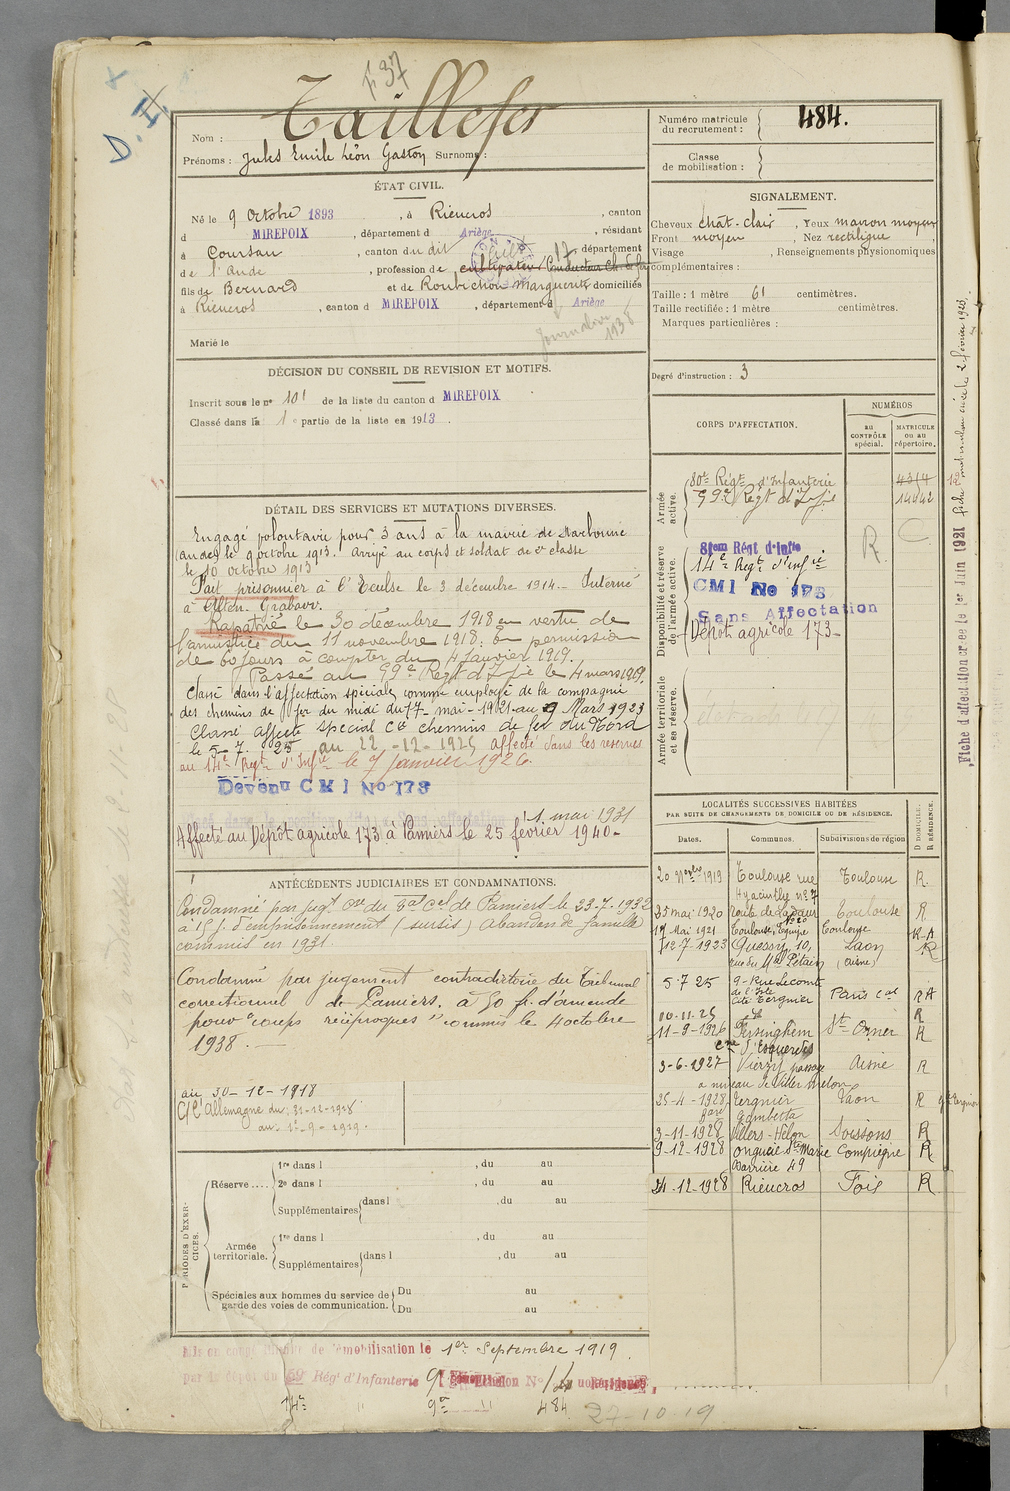 F 37
D.
Nom : Taillefer
Prénoms : Jules Emile Léon Gaston Surnoms :
ÉTAT CIVIL.
Né le 9 Octobre 1893 , à Rieucros , canton
d MIREPOIX , département d Ariège , résidant
à Coursan , canton du dit , département
de l'Aude , profession de cultivateur Conducteur Ch. de fer
fils de Bernard et de Roubichon Marguerite domiciliés
à Rieucros , canton d MIREPOIX , département d Ariège
Journalier 1938
Marié le
DÉCISION DU CONSEIL DE REVISION ET MOTIFS.
Inscrit sous le n° 101 de la liste du canton d MIREPOIX
Classé dans la 1e partie de la liste en 1913 .
DÉTAIL DES SERVICES ET MUTATIONS DIVERSES.
Engagé volontaire pour 3 ans à la mairie de Narbonne
(Aude) le 9 octobre 1913. Arrivé au corps et soldat de 2e classe
le 10 octobre 1913
Fait prisonnier à l'Ecluse le 3 décembre 1914.- Interné
à Alten-Grabow.
Rapatrié le 30 décembre 1918 en vertu de
l'armistice du 11 novembre 1918. En permission
de 60 jours à compter du 4 Janvier 1919.
Passé au 99e Régt d'Infie le 4 mars 1919.
Classé dans l'affectation spéciale comme employé de la compagnie
des chemins de fer du midi du 17-mai-1921 au 9 Mars 1923
Classé affecté spécial Cie chemins de fer du Nord
le 5-7-25 au 22-12-1925 affecté dans les réserves
au 14e Régt d'Infie le 7 janvier 1926
Devenu CMI No 173
1 mai 1931
Affecté au Dépôt agricole 173 à Pamiers le 25 février 1940-
ANTÉCÉDENTS JUDICIAIRES ET CONDAMNATIONS.
Condamné par jugt du Bal Cel de Pamiers le 23-7-1932
à 15 j. d'emprisonnement (sursis) abandon de famille
commis en 1931
Condamné par jugement contradictoire du Tribunal
correctionnel de Pamiers, à 50 fr. d'amende
pour "coups réciproques" commis le 4 octobre
1938. -
au 30-12-1918
C/C Allemagne du: 31-12-1918
au: 1er-9-1919.
PÉRIODES D'EXERCICES.
Réserve....
1re dans l , du au
2e dans l , du au
Supplémentaires dans l , du au
Armée territoriale.
1re dans l , du au
Supplémentaires dans l , du au
Spéciales aux hommes du service de garde des voies de communication.
Du au
Du au
Mis en congé illimité de démobilisation le 1er Septembre 1919.
par le dépôt du 99 Rég d'Infanterie 9
14e " 9e " 484
27-10-19
Numéro matricule du recrutement : 484.
Classe de mobilisation :
SIGNALEMENT.
Cheveux chât-clair , Yeux marron moyen
Front moyen , Nez rectiligne ,
Visage , Renseignements physionomiques
complémentaires :
Taille : 1 mètre 61 centimètres.
Taille rectifiée : 1 mètre centimètres.
Marques particulières :
Degré d'instruction : 3
CORPS D'AFFECTATION.
NUMÉROS
au CONTRÔLE spécial.
MATRICULE ou au répertoire.
Armée active.
80e Régt d'Infanterie 4314
99e Régt d'Infie 14442
Disponibilité et réserve de l'armée active.
R C
81em Régt d'Infie
14e Régt d'Infie
CMI No 173
Sans Affectation
Dépôt agricole 173-
Armée territoriale et sa réserve.
LOCALITÉS SUCCESSIVES HABITÉES
PAR SUITE DE CHANGEMENTS DE DOMICILE OU DE RÉSIDENCE.
Dates. Communes. Subdivisions de région D DOMICILE. R RÉSIDENCE.
20 Nbre 1919 Toulouse rue Toulouse R.
Hyacinthe n° 7
25 mai 1920 route de Toulouse R
17 Mai 1921 Toulouse, Toulouse R-A
12-7-1923 Quessy, 10, Laon R
rue du Mal Pétain (Aisne)
5-7 25 9- Rue Lecomte
de l'Isle
Cité Tergnier Paris cal RA
R
11-9-1926 Persinghem St Omer R
Cne d'Esquerdes
3-6-1927 Vierzy passage Aisne R
à niveau de Viller Hélon
25-4-1928 Tergnier Laon R
Gambetta
3-11-1928 Villers-Hélon Soissons R
9-12-1928 Longueil Ste Marie Compiègne R
Barrière 49
24-12-1928 Rieucros Foix R
Fiche d'affectation créée le 1er Juin 1921
fiche matricule créée le 2 février 1926.